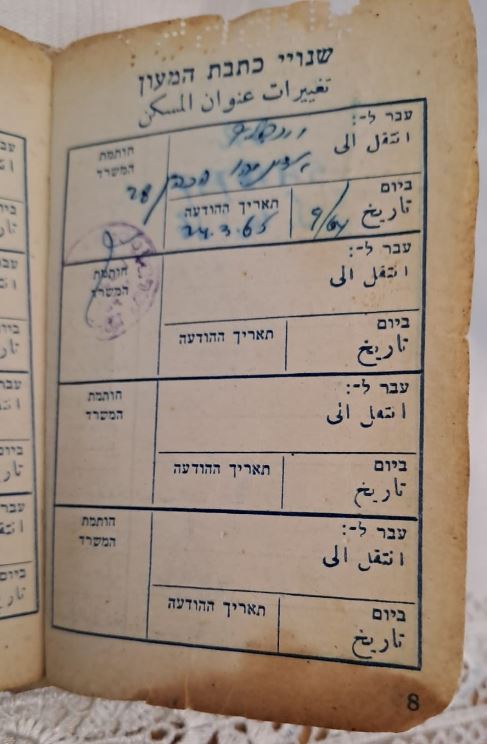 שנויי כתבת המעון
تغييرات عنوان المسكن
עבר ל-:
انتقل الى
חותמת
המשרד
הכהן 28
ביום
تاريخ
9/64
תאריך ההודעה
24.3.65
עבר ל-:
انتقل الى
חותמת
המשרד
ביום
تاريخ
תאריך ההודעה
עבר ל-:
انتقل الى
חותמת
המשרד
ביום
تاريخ
תאריך ההודעה
עבר ל-:
انتقل الى
חותמת
המשרד
ביום
تاريخ
תאריך ההודעה
8